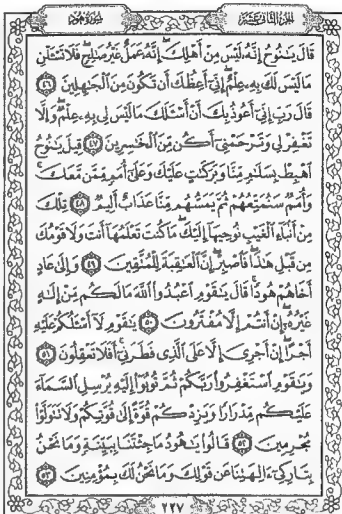 سُورَةُ هُودٍ
الجزء الثاني عشر
قَالَ يَٰنُوحُ إِنَّهُۥ لَيْسَ مِنْ أَهْلِكَ ۖ إِنَّهُۥ عَمَلٌ غَيْرُ صَٰلِحٍ ۖ فَلَا تَسْـَٔلْنِ
مَا لَيْسَ لَكَ بِهِۦ عِلْمٌ ۖ إِنِّىٓ أَعِظُكَ أَن تَكُونَ مِنَ ٱلْجَٰهِلِينَ ٤٦
قَالَ رَبِّ إِنِّىٓ أَعُوذُ بِكَ أَنْ أَسْـَٔلَكَ مَا لَيْسَ لِى بِهِۦ عِلْمٌ ۖ وَإِلَّا
تَغْفِرْ لِى وَتَرْحَمْنِىٓ أَكُن مِّنَ ٱلْخَٰسِرِينَ ٤٧ قِيلَ يَٰنُوحُ
ٱهْبِطْ بِسَلَٰمٍ مِّنَّا وَبَرَكَٰتٍ عَلَيْكَ وَعَلَىٰٓ أُمَمٍ مِّمَّن مَّعَكَ ۚ
وَأُمَمٌ سَنُمَتِّعُهُمْ ثُمَّ يَمَسُّهُم مِّنَّا عَذَابٌ أَلِيمٌ ٤٨ تِلْكَ
مِنْ أَنۢبَآءِ ٱلْغَيْبِ نُوحِيهَآ إِلَيْكَ ۖ مَا كُنتَ تَعْلَمُهَآ أَنتَ وَلَا قَوْمُكَ
مِن قَبْلِ هَٰذَا ۖ فَٱصْبِرْ ۖ إِنَّ ٱلْعَٰقِبَةَ لِلْمُتَّقِينَ ٤٩ وَإِلَىٰ عَادٍ
أَخَاهُمْ هُودًا ۚ قَالَ يَٰقَوْمِ ٱعْبُدُوا۟ ٱللَّهَ مَا لَكُم مِّنْ إِلَٰهٍ
غَيْرُهُۥٓ ۖ إِنْ أَنتُمْ إِلَّا مُفْتَرُونَ ٥٠ يَٰقَوْمِ لَآ أَسْـَٔلُكُمْ عَلَيْهِ
أَجْرًا ۖ إِنْ أَجْرِىَ إِلَّا عَلَى ٱلَّذِى فَطَرَنِىٓ ۚ أَفَلَا تَعْقِلُونَ ٥١
وَيَٰقَوْمِ ٱسْتَغْفِرُوا۟ رَبَّكُمْ ثُمَّ تُوبُوٓا۟ إِلَيْهِ يُرْسِلِ ٱلسَّمَآءَ
عَلَيْكُم مِّدْرَارًا وَيَزِدْكُمْ قُوَّةً إِلَىٰ قُوَّتِكُمْ وَلَا تَتَوَلَّوْا۟
مُجْرِمِينَ ٥٢ قَالُوا۟ يَٰهُودُ مَا جِئْتَنَا بِبَيِّنَةٍ وَمَا نَحْنُ
بِتَارِكِىٓ ءَالِهَتِنَا عَن قَوْلِكَ وَمَا نَحْنُ لَكَ بِمُؤْمِنِينَ ٥٣
٢٢٧